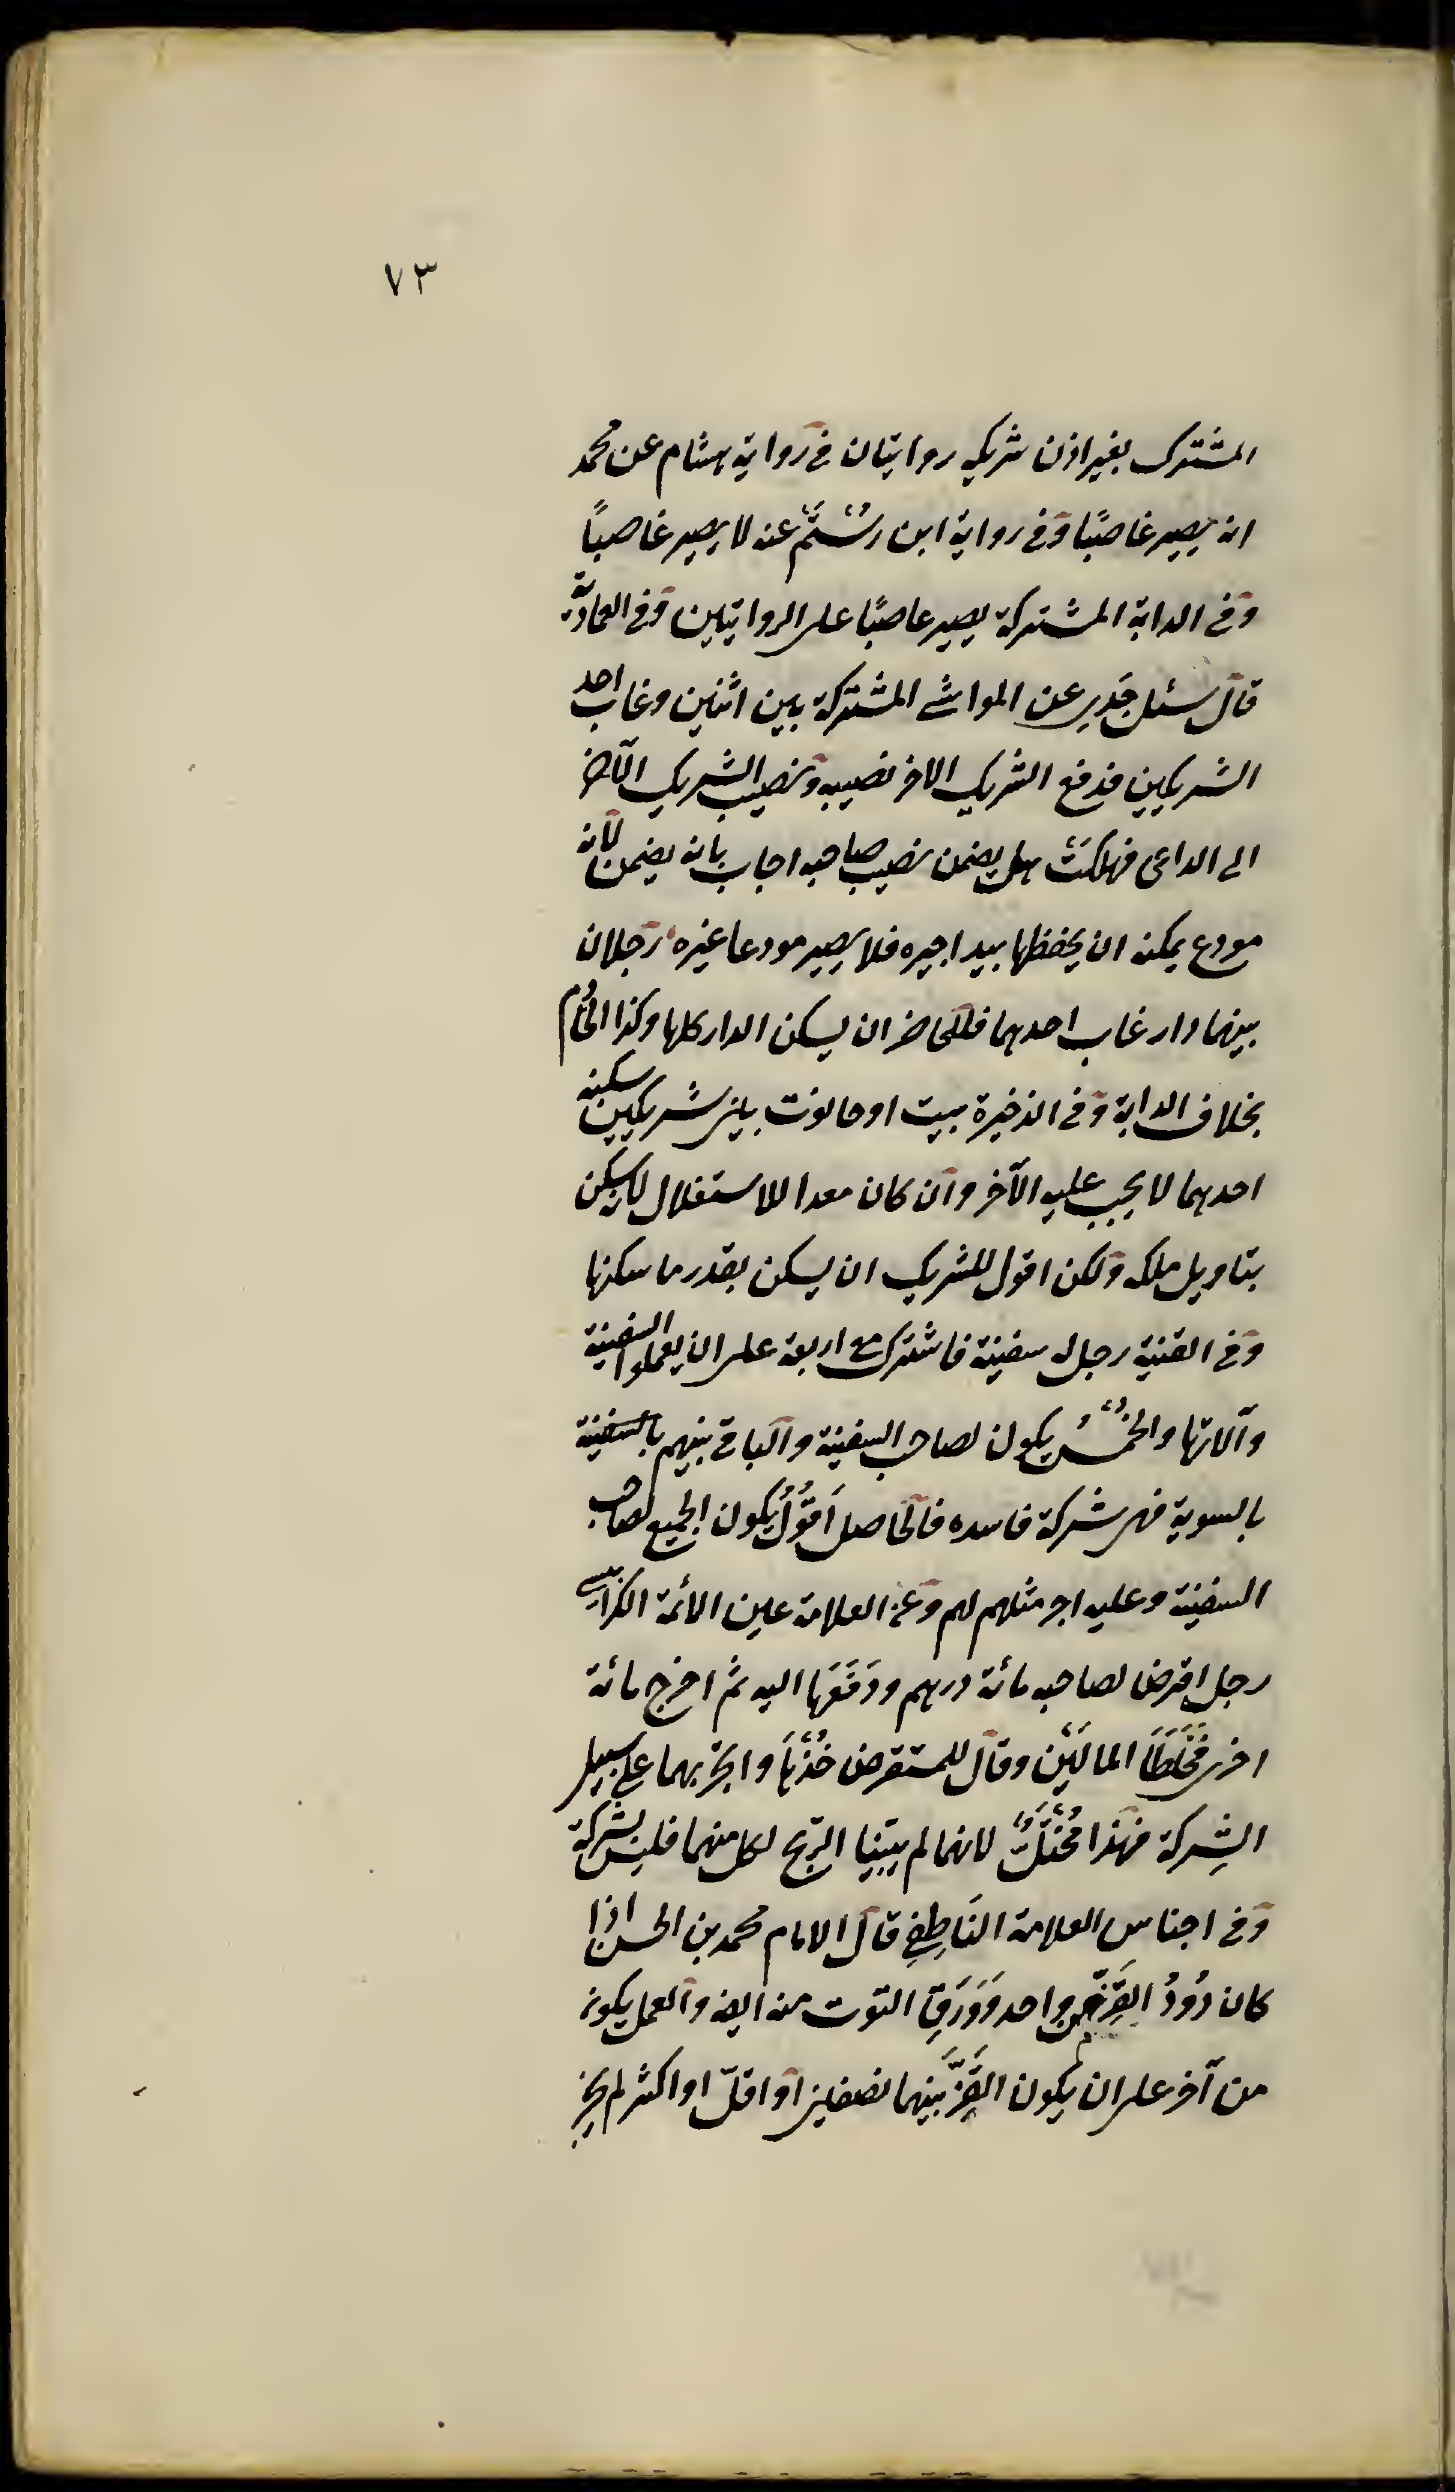 ٧٣
المشترك بغير اذن شريكه روايتان في رواية هشام عن محمد
انه يصير غاصبًا وفي رواية ابن رُسْتَم عنه لا يصير غاصبًا
وفي الدابة المشتركة يصير غاصبًا على الروايتين وفي العماديّة
قال سئل جَدِي عن المواشي المشتركة بين اثنين وغاب احد
الشريكين فدفع الشريك الاخر نصيبه ونصيب الشريك الآخر
الى الداعى فهلكَتْ هل يضمن نصيب صاحبه اجاب بانه يضمن لانه
مودع يمكنه ان يحفظها بيد اجيره فلا يصير مودعا غيره رجلان
بينهما دار غاب احدهما فللحاضر ان يسكن الدار كلها وكذا الخادم
بخلاف الدابة وفي الذخيرة بيت او حانوت بين شريكين سكنه
احدهما لا يجب عليه الآخر وان كان معدا للاستغلال لانه يسكن
بتاويل ملكه ولكن اقول للشريك ان يسكن بقدر ما سكنها
وفي القنية رجل له سفينة فاشترك مع اربعة على ان يعملوا السفينة
وآلاتها والخُمْسُ يكون لصاحب السفينة والباقي بينهم بالسفينة
بالسوية فهي شركة فاسده فالحاصل اَقُوْلُ يكون الجميع لصاحب
السفينة وعليه اجر مثلهم لهم وعن العلامة عين الائمة الكرابيسي
رجل اقرض لصاحبه مائة درهم ودَفَعَها اليه ثم اخرج مائة
اخرى فخَلَطَا المالَيْن وقال للمستقرض خُذْهَا واتجر بهما على سبيل
الشِركة فهذا مُخْتَلٌّ لانهما لم يبينا الرّبح لكل منهما فليس بشركة
وفي اجناس العلامة النَاطِفِي قال الامام محمد بن الحسن اذا
كان دُوْدُ القَزِّ من واحد وَوَرَقِ التوت منه ايضا والعمل يكون
من آخر على ان يكون القَزّ بَينهما نصفين او اقلّ او اكثر لم يجز